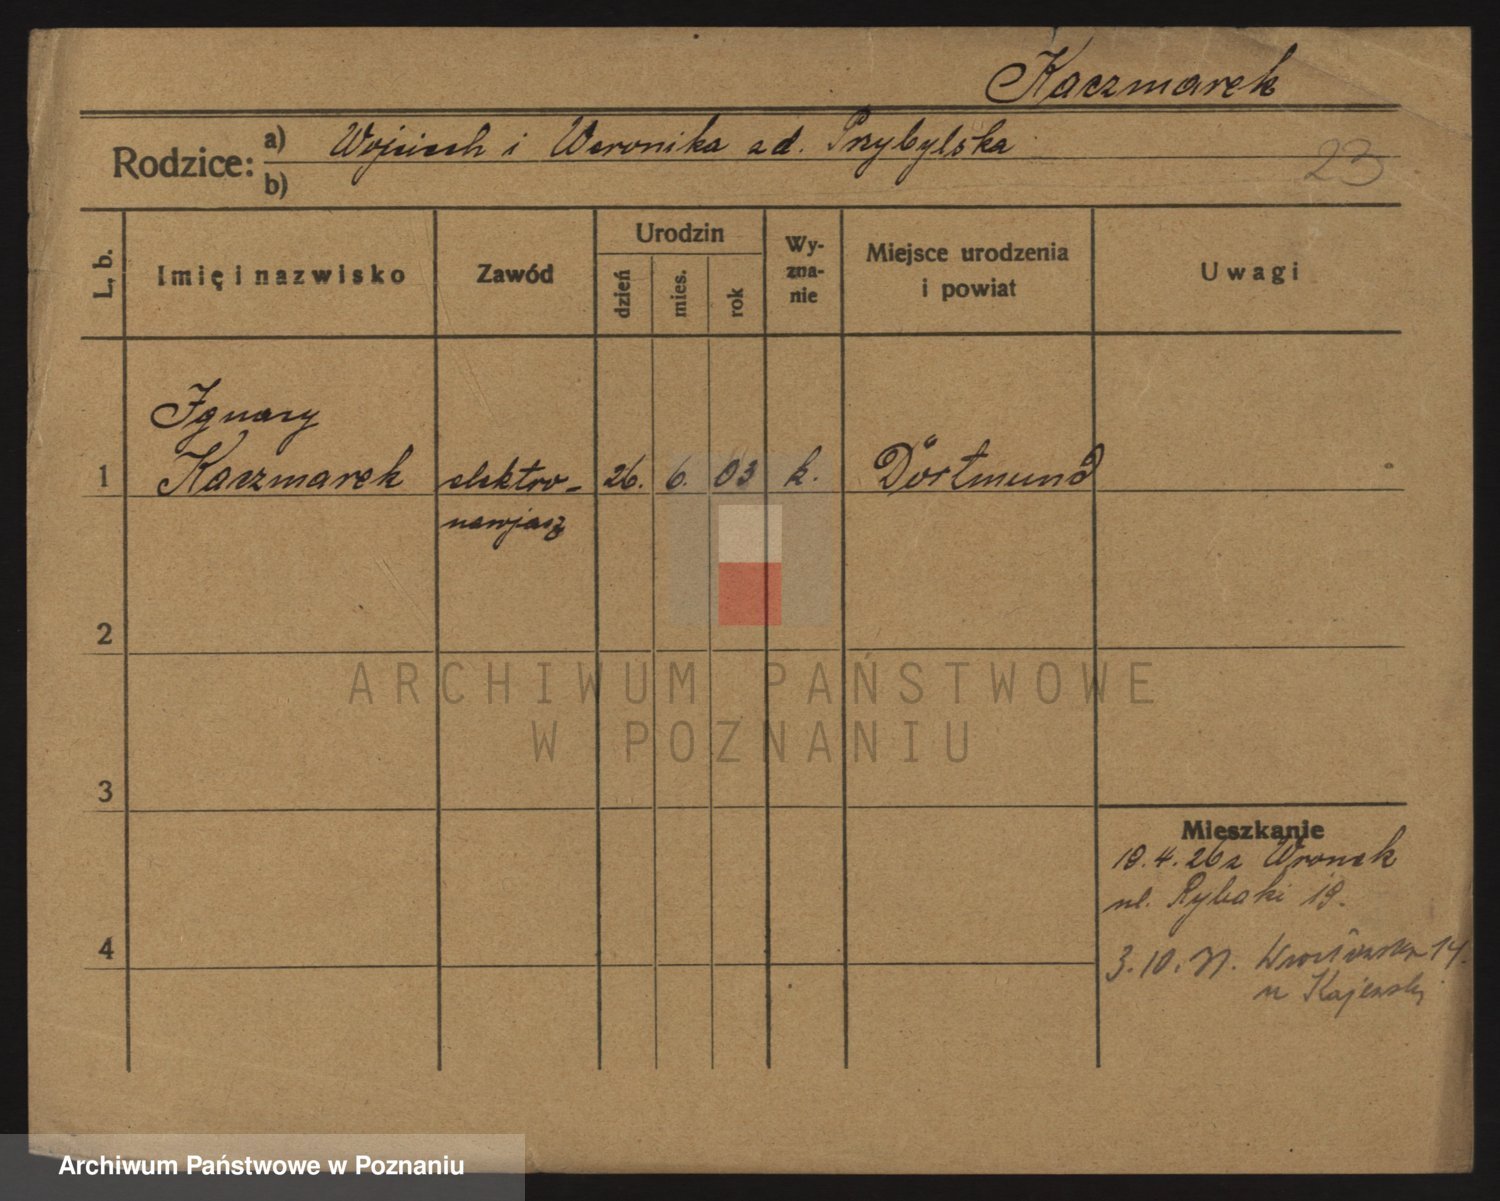 Kaczmarek
Rodzice: a) Wojciech i Weronika zd. Przybylska
b)
23
L. b.
Imię i nazwisko
Zawód
Urodzin
dzień
mies.
rok
Wy-
zna-
nie
Miejsce urodzenia
i powiat
Uwagi
Ignacy
1 Kaczmarek elektro- 26. 6. 03 k. Dortmund
2
3
4
Mieszkanie
19.4.26 z Wronek
ul. Rybaki 19.
3.10. 14.
u Kajewski
ARCHIWUM PAŃSTWOWE
W POZNANIU
Archiwum Państwowe w Poznaniu